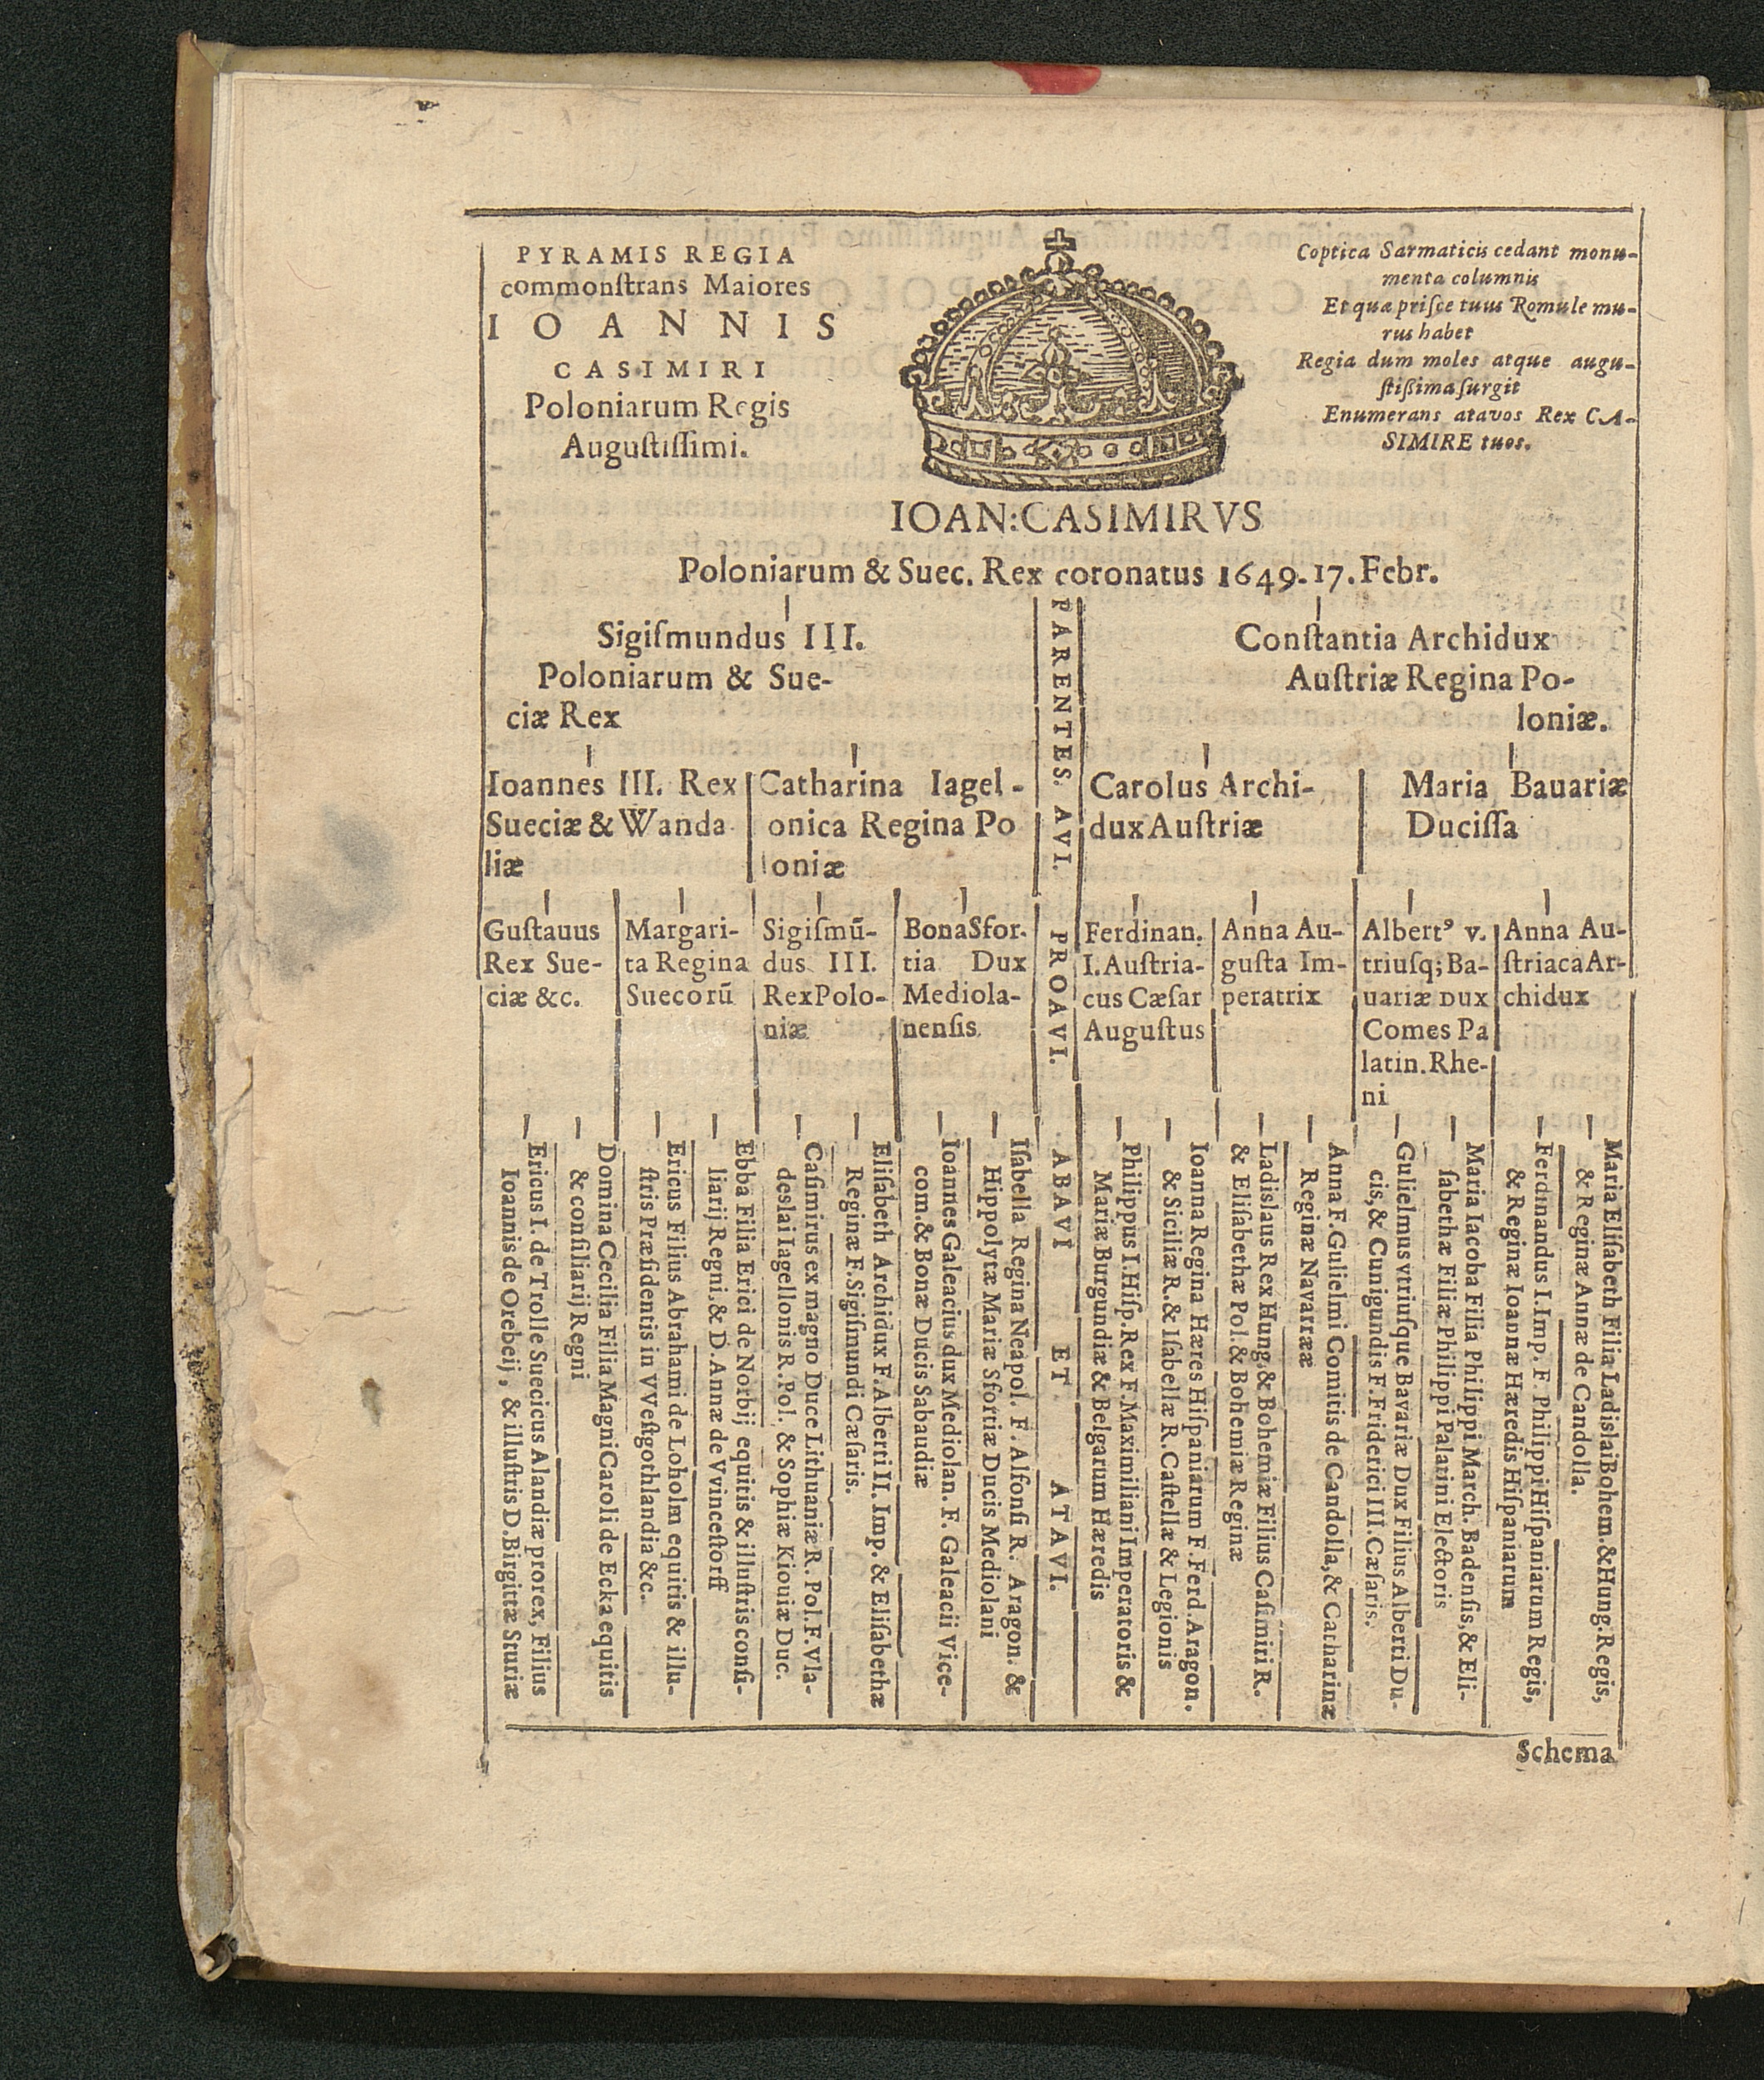 PYRAMIS REGIA
commonſtrans Maiores
IOANNIS
CASIMIRI
Poloniarum Regis
Auguſtiſſimi.
Coptica Sarmaticis cedant monu-
menta columnis
Et qua priſce tuus Romule mu-
rus habet
Regia dum moles atque augu-
ſtißima ſurgit
Enumerans atavos Rex CA-
SIMIRE tuos.
IOAN: CASIMIRVS
Poloniarum & Suec. Rex coronatus 1649. 17. Febr.
PARENTES.
Sigiſmundus III.
Poloniarum & Sue-
ciæ Rex
Conſtantia Archidux
Auſtriæ Regina Po-
loniæ.
AVI.
Ioannes III. Rex
Sueciæ & Wanda
liæ
Catharina Iagel-
onica Regina Po
loniæ
Carolus Archi-
dux Auſtriæ
Maria Bauariæ
Duciſſa
PROAVI.
Guſtauus
Rex Sue-
ciæ &c.
Margari-
ta Regina
Suecorũ
Sigiſmũ-
dus III.
Rex Polo-
niæ
Bona Sfor-
tia Dux
Mediola-
nenſis
Ferdinan.
I. Auſtria-
cus Cæſar
Auguſtus
Anna Au-
guſta Im-
peratrix
Albertꝰ v.
triuſq; Ba-
uariæ Dux
Comes Pa
latin. Rhe-
ni
Anna Au-
ſtriaca Ar-
chidux
ABAVI ET ATAVI.
Ericus I. de Trolle Suecicus Alandiæ prorex, Filius
Ioannis de Orebeij, & illuſtris D. Birgittæ Sturiæ
Domina Cecilia Filia Magni Caroli de Ecka equitis
& conſiliarij Regni
Ericus Filius Abrahami de Loholm equitis & illu-
ſtris Præſidentis in VVeſtgothlandia &c.
Ebba Filia Erici de Norbij equitis & illuſtris conſi-
liarij Regni & D. Annæ de Vvinceſtorff
Caſimirus ex magno Duce Lithuaniæ R. Pol. F. Vla-
deslai Iagellonis R. Pol. & Sophiæ Kiouiæ Duc.
Eliſabeth Archidux F. Alberti II. Imp. & Eliſabethæ
Reginæ F. Sigiſmundi Cæſaris.
Ioannes Galeacius dux Mediolan. F. Galeacii Vice-
com. & Bonæ Ducis Sabaudiæ
Iſabella Regina Neapol. F. Alfonſi R. Aragon. &
Hippolytæ Mariæ Sfortiæ Ducis Mediolani
Philippus I. Hiſp. Rex F. Maximiliani Imperatoris &
Mariæ Burgundiæ & Belgarum Hæredis
Ioanna Regina Hæres Hiſpaniarum F. Ferd. Aragon.
& Siciliæ R. & Iſabellæ R. Caſtellæ & Legionis
Ladislaus Rex Hung. & Bohemiæ Filius Caſimiri R.
& Eliſabethæ Pol. & Bohemiæ Reginæ
Anna F. Gulielmi Comitis de Candolla, & Catharinæ
Reginæ Navarræ
Gulielmus vtriuſque Bavariæ Dux Filius Alberti Du-
cis, & Cunigundis F. Friderici III. Cæſaris.
Maria Iacoba Filia Philippi March. Badenſis, & Eli-
ſabethæ Filiæ Philippi Palatini Electoris
Ferdinandus I. Imp. F. Philippi Hiſpaniarum Regis,
& Reginæ Ioannæ Hæredis Hiſpaniarum
Maria Eliſabeth Filia Ladislai Bohem. & Hung. Regis,
& Reginæ Annæ de Candolla.
Schema